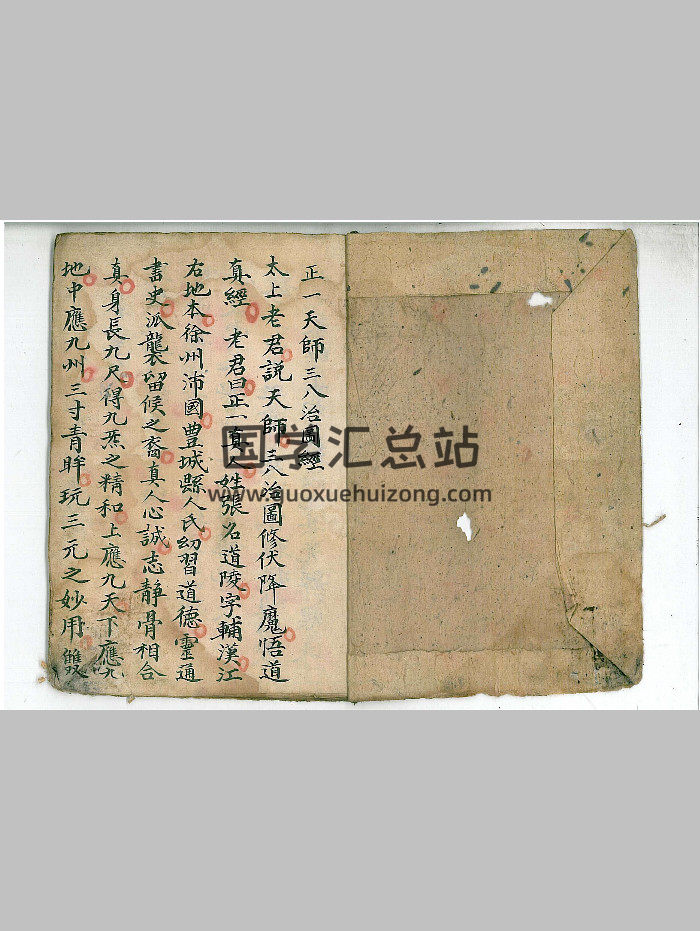 正一天師三八治圖經
太上老君説天師三八治圖修伏降魔悟道
真經 老君曰正一真人姓張名道陵字輔漢江
右地本徐州沛國豊城縣人氏幼習道德靈通
書史派襲留候之裔真人心誠志静骨相合
真身長九尺得九炁之精和上應九天下應九
地中應九州三寸青眸玩三元之妙用雙
国学汇总站
www.guoxuehuizong.com